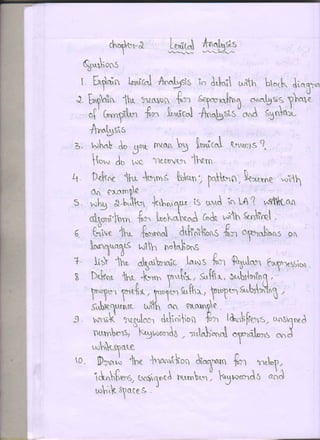 chapter-2 Lexical Analysis
Questions
1. Explain Lexical Analysis in detail with block diagram
2. Explain the reason for separating analysis phase
of Compiler for Lexical Analysis and Syntax
Analysis
3. what do you mean by lexical errors ?
How do we recover them.
4. Define the terms token, pattern, lexeme with
an example
5. why 2-buffer technique is used in LA ? write an
algorithm for Lookahead Code with Sentinel.
6. Give the formal definitions for operations on
languages with notations
7. List the algebraic laws for Regular Expression.
8 Define the term prefix, Suffix, Substring,
proper prefix, proper suffix, proper Substring,
Subsequence with an example.
9. write regular definition for Identifiers, unsigned
numbers, keywords, relational operators and
whitespace
10. Draw the transition diagram for relop,
identifiers, unsigned number, keywords and
white spaces.